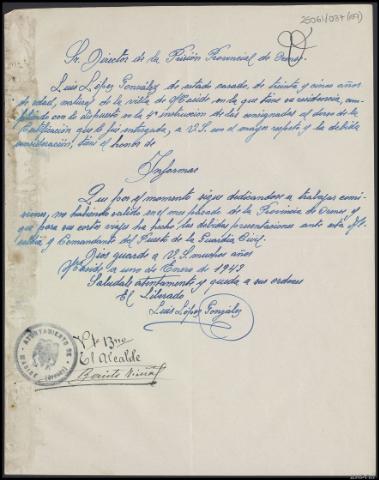 25061/037/(07)
Sr. Director de la Prisión Provincial de Orense.
Luis López González, de estado casado, de treinta y cinco años
de edad, natural de la villa de Maside en la que tiene su residencia, cum-
pliendo con lo dispuesto en la 4ª instrucción de las consignadas al dorso de la
Certificación que le fué entregada, a V.S. con el mayor respeto y la debida
consideración, tiene el honor de
Informar
Que por el momento sigue dedicándose a trabajar como
no habiendo salido en el mes pasado de la Provincia de Orense y
que para sus cortos viajes ha hecho las debidas presentaciones ante esta Al-
caldía y Comandante del Puesto de la Guardia Civil.
Dios guarde a V.S. muchos años
Maside a uno de Enero de 1943
Saludale atentamente y queda a sus ordenes
El Liberado
Luis López González
Vº Bno
El Alcalde
Benito
AYUNTAMIENTO DE
MASIDE (Orense)